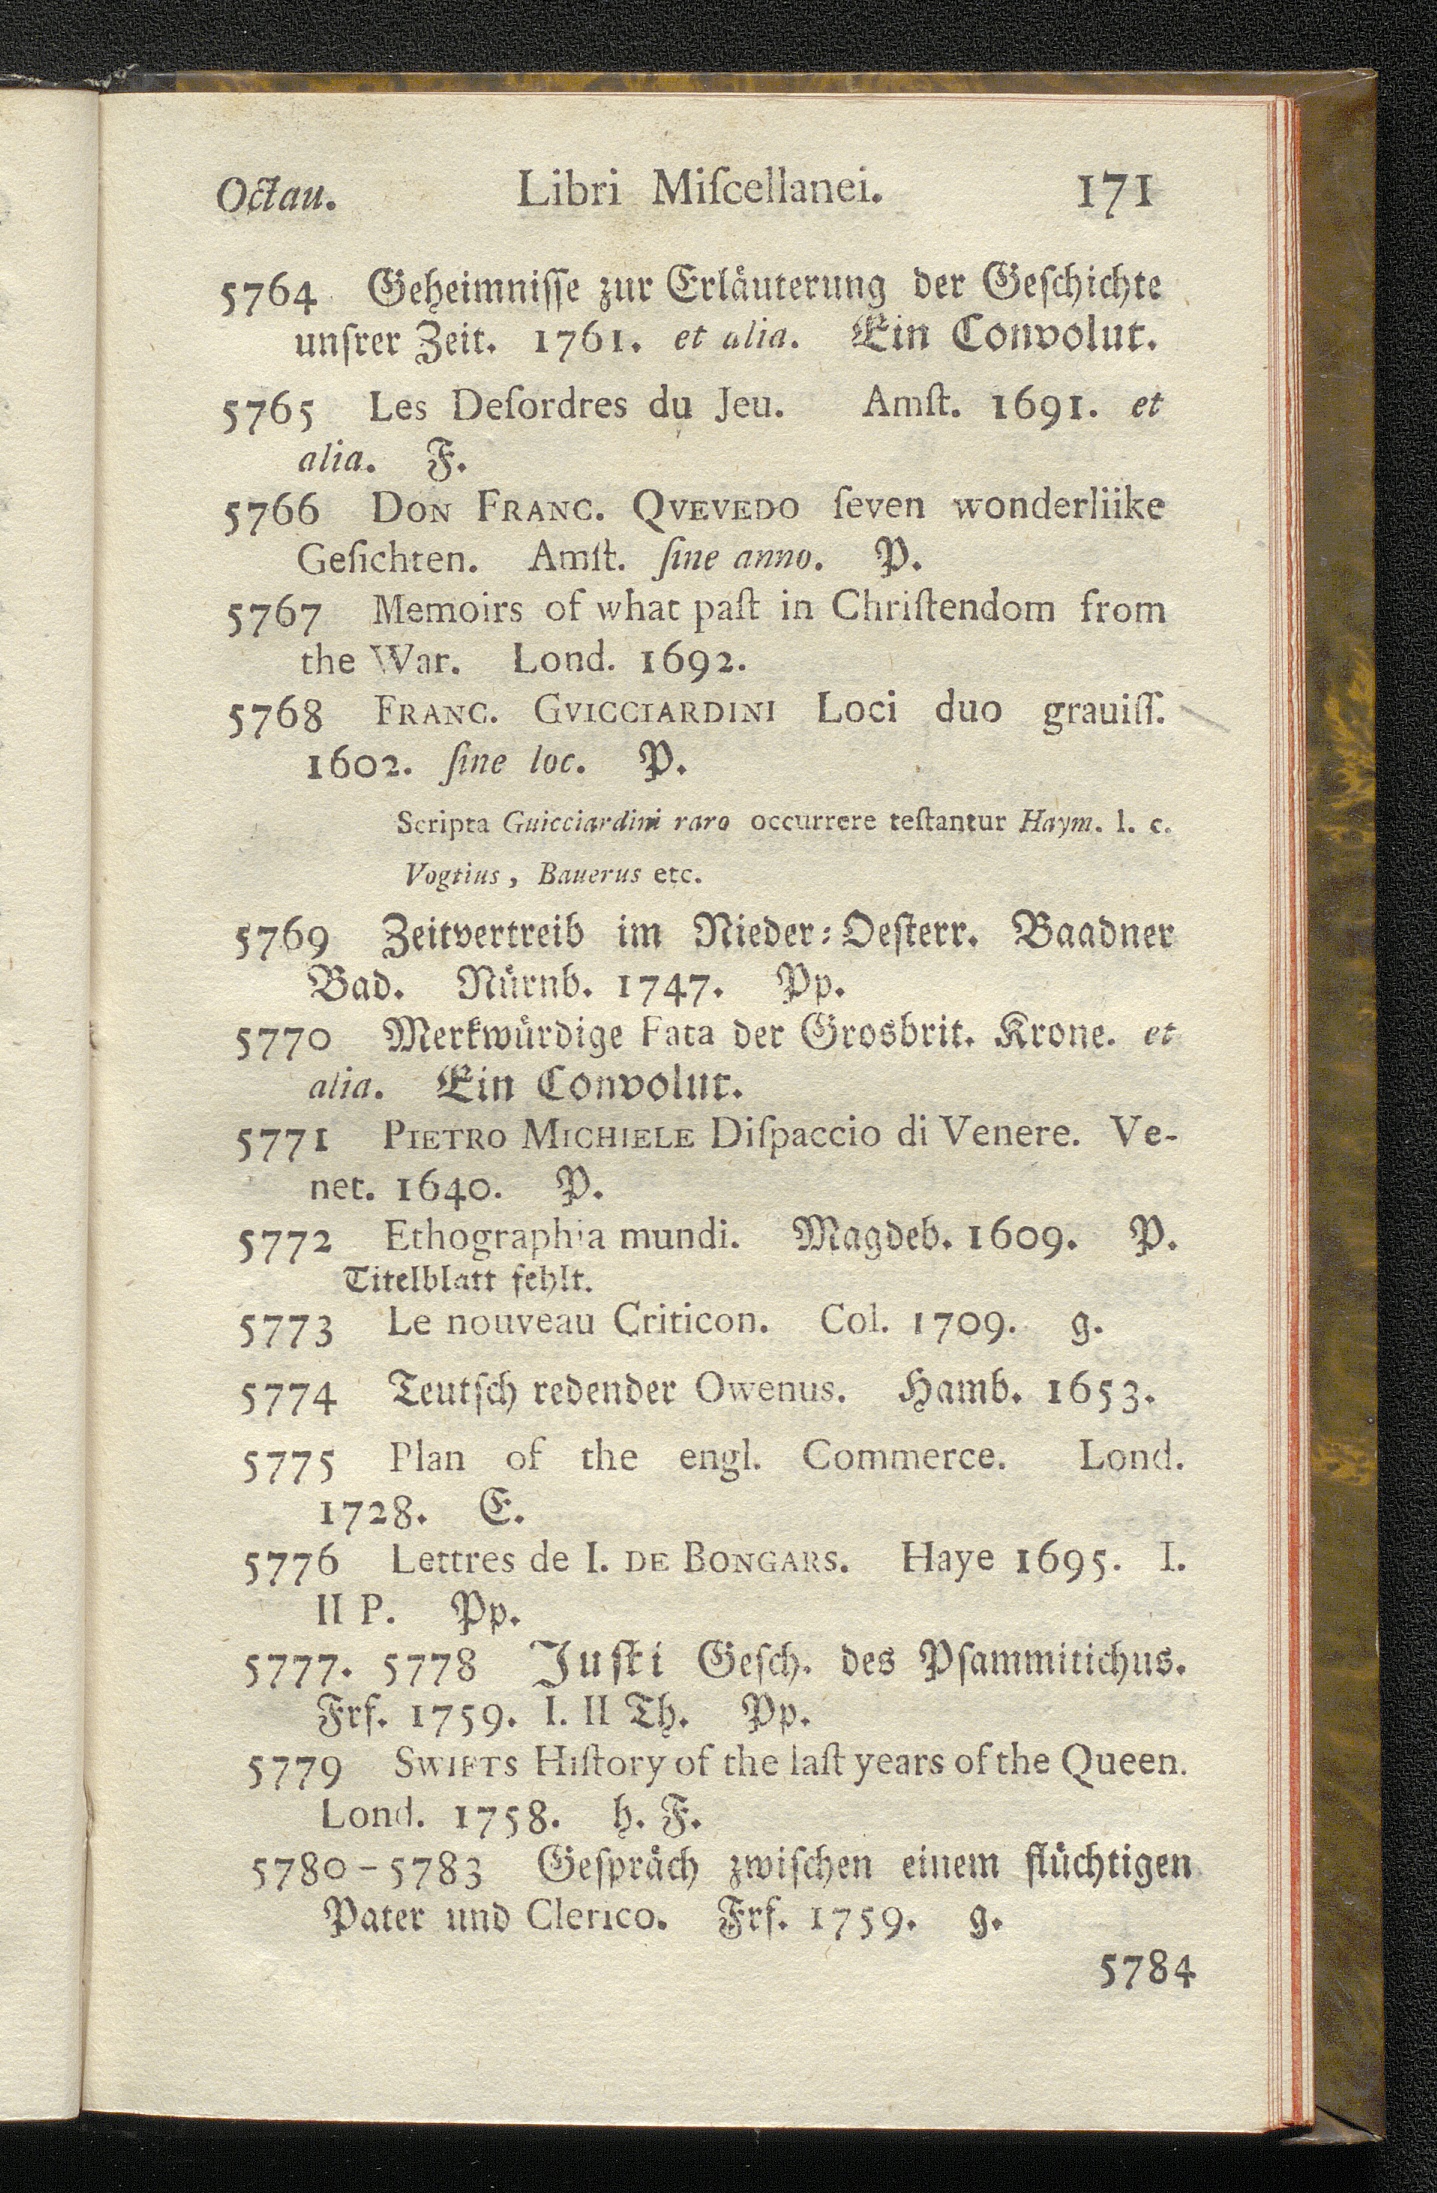 Octau. Libri Miſcellanei. 171
5764 Geheimniſſe zur Erläuterung der Geſchichte
unſrer Zeit. 1761. et alia. Ein Convolut.
5765 Les Deſordres du Jeu. Amſt. 1691. et
alia. F.
5766 DON FRANC. QVEVEDO ſeven wonderliike
Geſichten. Amſt. ſine anno. P.
5767 Memoirs of what paſt in Chriſtendom from
the War. Lond. 1692.
5768 FRANC. GVICCIARDINI Loci duo grauiſſ.
1602. ſine loc. P.
Scripta Guicciardini raro occurrere teſtantur Haym. l. c.
Vogtius, Bauerus etc.
5769 Zeitvertreib im Nieder⸗Oeſterr. Baadner
Bad. Nürnb. 1747. Pp.
5770 Merkwürdige Fata der Grosbrit. Krone. et
alia. Ein Convolut.
5771 PIETRO MICHIELE Diſpaccio di Venere. Ve-
net. 1640. P.
5772 Ethographia mundi. Magdeb. 1609. P.
Titelblatt fehlt.
5773 Le nouveau Criticon. Col. 1709. g.
5774 Teutſch redender Owenus. Hamb. 1653.
5775 Plan of the engl. Commerce. Lond.
1728. E.
5776 Lettres de I. DE BONGARS. Haye 1695. I.
II P. Pp.
5777. 5778 Juſti Geſch. des Pſammitichus.
Frf. 1759. I. II Th. Pp.
5779 SWIFTS Hiſtory of the laſt years of the Queen.
Lond. 1758. h. F.
5780-5783 Geſpräch zwiſchen einem flüchtigen
Pater und Clerico. Frf. 1759. g.
5784